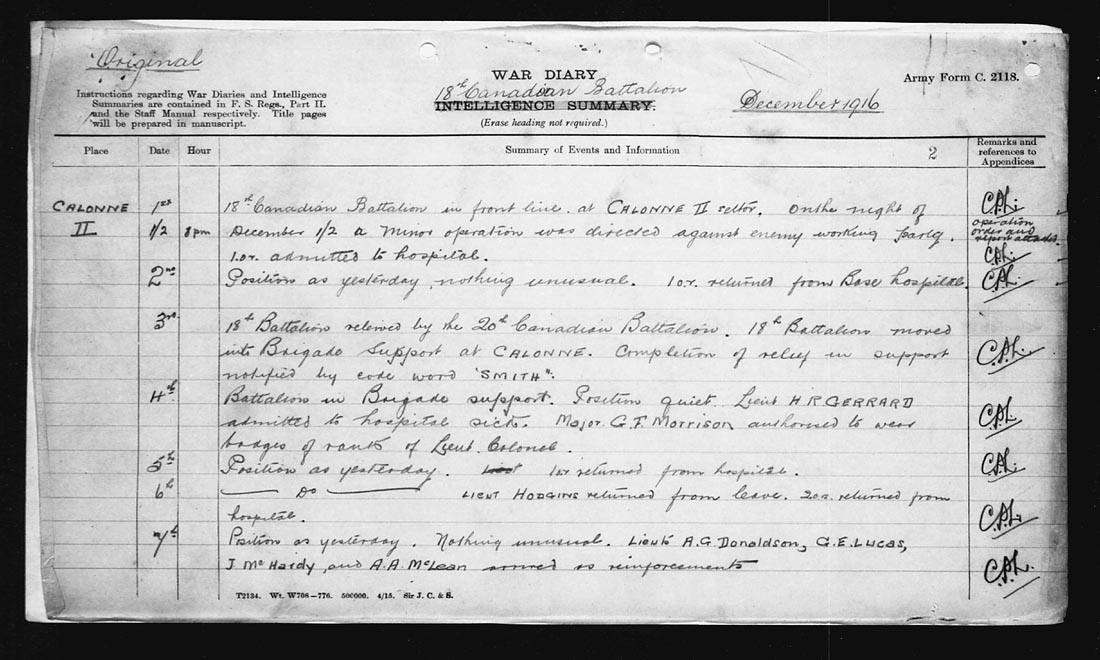 Original
WAR DIARY
18th Canadian Battalion
INTELLIGENCE SUMMARY.
(Erase heading not required.)
Army Form C. 2118.
Instructions regarding War Diaries and Intelligence
Summaries are contained in F. S. Regs., Part II.
and the Staff Manual respectively. Title pages
will be prepared in manuscript.
December 1916
Place Date Hour Summary of Events and Information 2 Remarks and
references to
Appendices
CALONNE 1st 18th Canadian Battalion in front line at CALONNE II sector. On the night of C.A.L.
II 1/2 8pm December 1/2 a minor operation was directed against enemy working party. operation
order and
report attached.
1.o.r. admitted to hospital. C.A.L.
2nd Position as yesterday, nothing unusual. 1 o.r. returned from Base hospital. C.A.L.
3rd 18th Battalion relieved by the 20th Canadian Battalion. 18th Battalion moved
into Brigade Support at CALONNE. Completion of relief in support C.A.L.
notified by code word "SMITH".
4th Battalion in Brigade support. Position quiet. Lieut H.R GERRARD
admitted to hospital sick. Major G.F. Morrison authorised to wear C.A.L.
badges of rank of Lieut. Colonel.
5th Position as yesterday. 1 o.r returned from hospital. C.A.L.
6th Do LIEUT HODGINS returned from leave. 2 o.r. returned from
hospital. C.A.L.
7th Position as yesterday. Nothing unusual. Lieuts A.G. Donaldson, G.E. Lucas,
J McHardy, and A.A. McLean arrived as reinforcements C.A.L.
T2134. Wt. W708—776. 500000. 4/15. Sir J. C. & S.